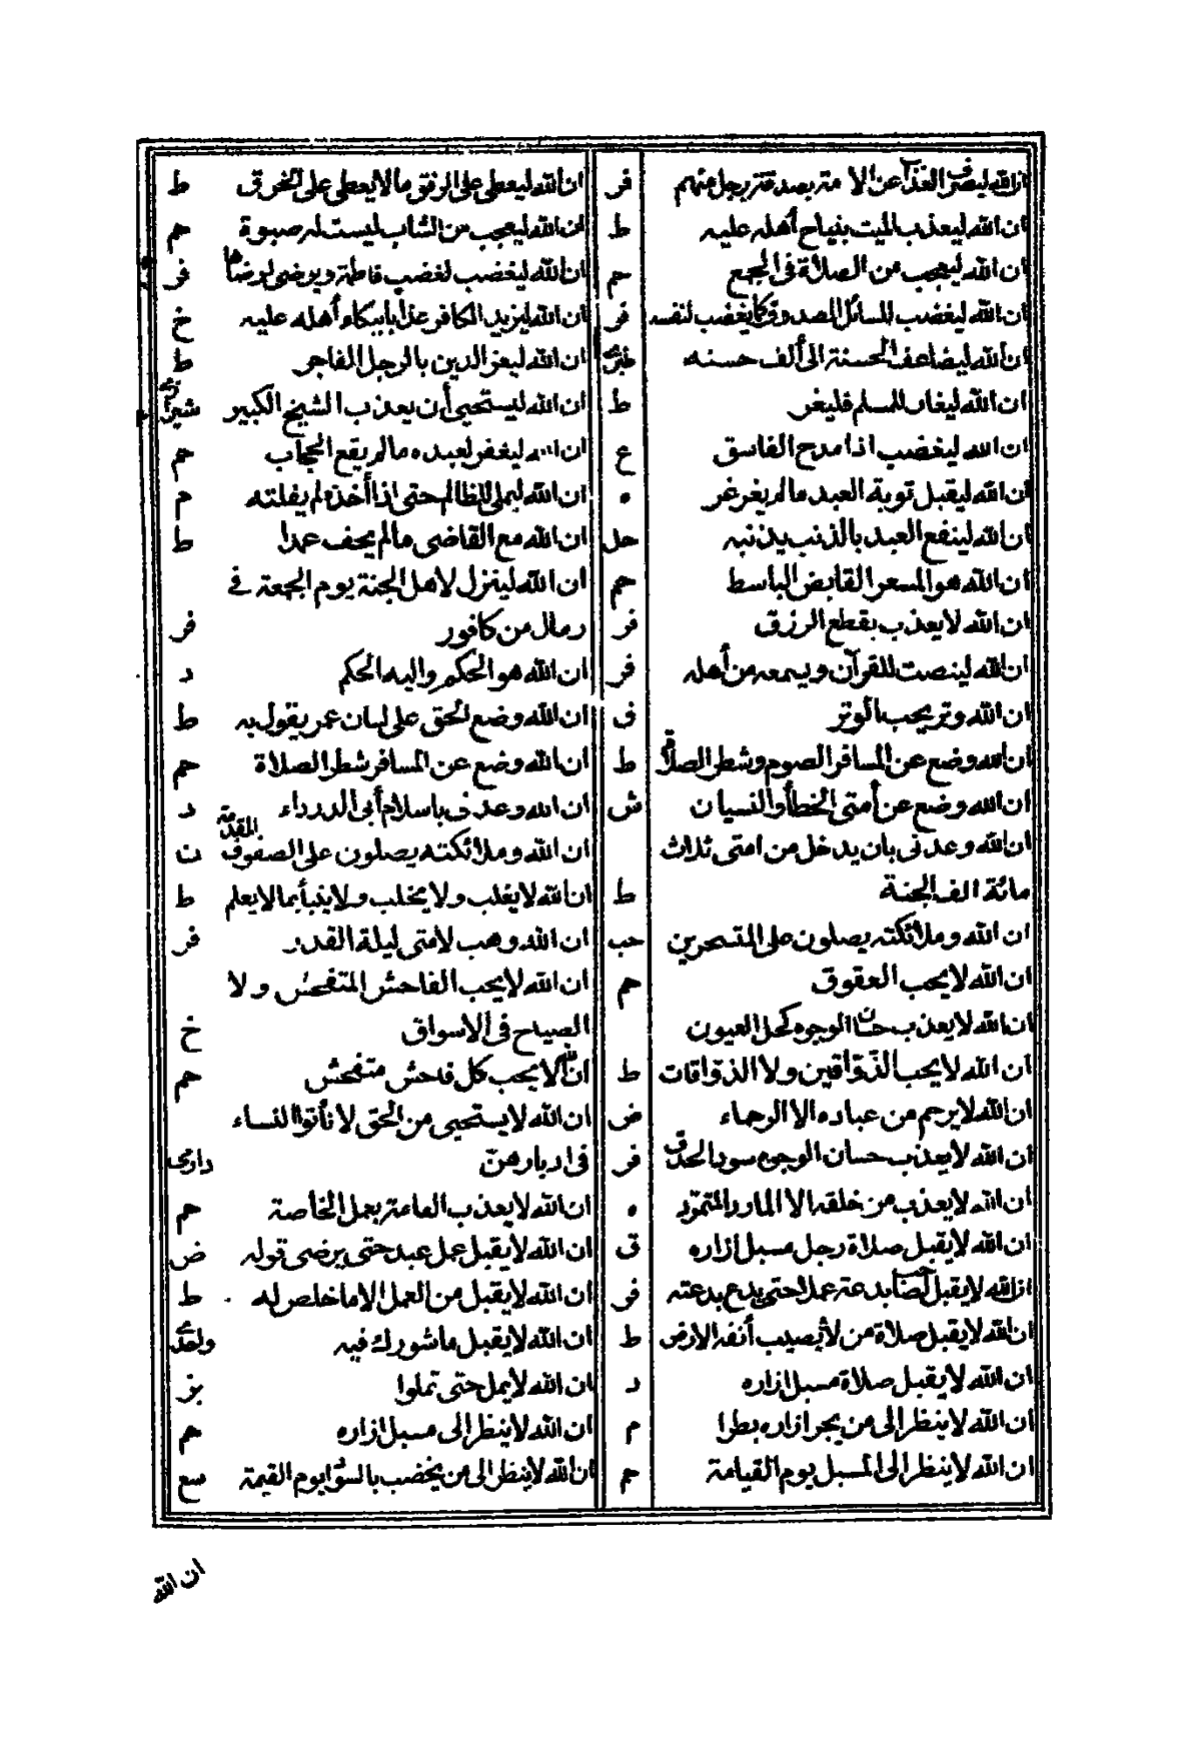 ان الله ليصرف العذاب عن الامة بصدقة رجل منهم فر
ان الله ليعذب الميت بنياح أهله عليه ط
ان الله ليعجب من الصلاة فى الجمع حم
ان الله ليغضب للسائل الصدوق كما يغضب لنفسه فر
ان الله ليضاعف الحسنة الى ألف حسنه
ان الله ليغار للمسلم فليغر ط
ان الله ليغضب اذا مدح الفاسق ع
ان الله ليقبل توبة العبد مالم يغرغر ه
ان الله لينفع العبد بالذنب يذنبه حل
ان الله هو المسعر القابض الباسط حم
ان الله لا يعذب بقطع الرزق فر
ان الله لينصت للقرآن ويسمعه من أهله فر
ان الله وتر يحب الوتر ق
ان الله وضع عن المسافر الصوم وشطر الصلاة ط
ان الله وضع عن أمتى الخطأ والنسيان ش
ان الله وعدنى بان يدخل من امتى ثلاث
مائة الف الجنة ط
ان الله وملائكته يصلون على المتسحرين حب
ان الله لا يحب العقوق حم
ان الله لا يعذب حسان الوجوه كحل العيون
ان الله لا يحب الذواقين ولا الذواقات ط
ان الله لا يرحم من عباده الا الرحماء ض
ان الله لا يعذب حسان الوجوه سود الحدق فر
ان الله لا يعذب من خلقه الا المارد المتمرّد ه
ان الله لا يقبل صلاة رجل مسبل ازاره ق
ان الله لا يقبل لصاحب بدعة عملا حتى يدع بدعته فر
ان الله لا يقبل صلاة من لا يصيب أنفه الارض ط
ان الله لا يقبل صلاة مسبل ازاره د
ان الله لا ينظر الى من يجر ازاره بطرا م
ان الله لا ينظر الى المسبل يوم القيامة حم
ان الله ليعطى على الرفق مالا يعطى على الخرق ط
ان الله ليعجب من الشاب ليست له صبوة حم
ان الله ليغضب لغضب فاطمة ويرضى لرضاها فر
ان الله ليزيد الكافر عذابا ببكاء أهله عليه خ
ان الله ليعز الدين بالرجل الفاجر ط
ان الله ليستحيى أن يعذب الشيخ الكبير
ان الله ليغفر لعبده مالم يقع الحجاب حم
ان الله ليملى للظالم حتى اذا أخذه لم يفلته م
ان الله مع القاضى مالم يحف عمدا ط
ان الله ليتنزل لاهل الجنة يوم الجمعة فى
رمال من كافور فر
ان الله هو الحكم واليه الحكم د
ان الله وضع الحق على لسان عمر يقول به ط
ان الله وضع عن المسافر شطر الصلاة حم
ان الله وعدنى باسلام أبى الدرداء د
ان الله وملائكته يصلون على الصفوف المقدمة ن
ان الله لا يغلب ولا يخلب ولا ينبأ بما لا يعلم ط
ان الله وهب لامتى ليلة القدر فر
ان الله لا يحب الفاحش المتفحش ولا
الصياح فى الاسواق خ
ان الله لا يحب كل فاحش متفحش حم
ان الله لا يستحيى من الحق لا تأتوا النساء
فى ادبارهن دارمى
ان الله لا يعذب العامة بعمل الخاصة حم
ان الله لا يقبل عمل عبد حتى يرضى قوله ض
ان الله لا يقبل من العمل الا ما خلص له ط
ان الله لا يقبل ما شورك فيه
ان الله لا يمل حتى تملوا بز
ان الله لا ينظر الى مسبل ازاره حم
ان الله لا ينظر الى من يخضب بالسواد يوم القيمة سع
ان الله